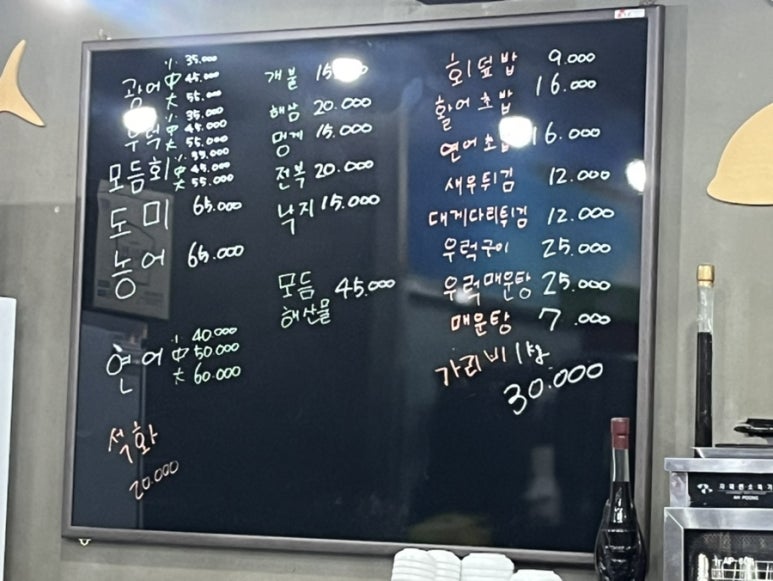 광어 小 35.000
中 45.000
大 55.000
우럭 小 35.000
中 45.000
大 55.000
모듬회 小 35.000
中 45.000
大 55.000
도미 65.000
농어 65.000
연어 小 40.000
中 50.000
大 60.000
석화
20.000
개불
해삼 20.000
멍게 15.000
전복 20.000
낙지 15.000
모듬 45.000
해산물
회덮밥 9.000
활어초밥 16.000
연어초밥 16.000
새우튀김 12.000
대게다리튀김 12.000
우럭구이 25.000
우럭매운탕 25.000
매운탕 7.000
가리비
30.000